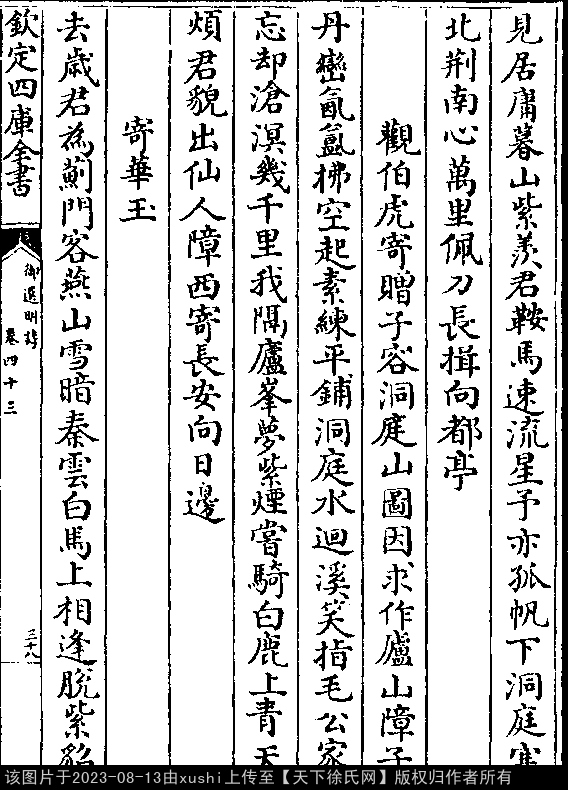 見居庸暮山紫羨君鞍馬速流星予亦孤帆下洞庭塞
北荆南心萬里佩刀長揖向都亭
觀伯虎寄贈子容洞庭山圖因求作廬山障子
丹巒氤氳拂空起素練平鋪洞庭水迴溪笑指毛公家
忘却滄溟幾千里我隔廬峯夢紫煙嘗騎白鹿上青天
煩君貌出仙人障西寄長安向日邊
寄華玉
去歲君為薊門客燕山雪暗秦雲白馬上相逢脱紫貂
欽定四庫全書
御選明詩
卷四十三
三十八
该图片于2023-08-13由xushi上传至【天下徐氏网】版权归作者所有